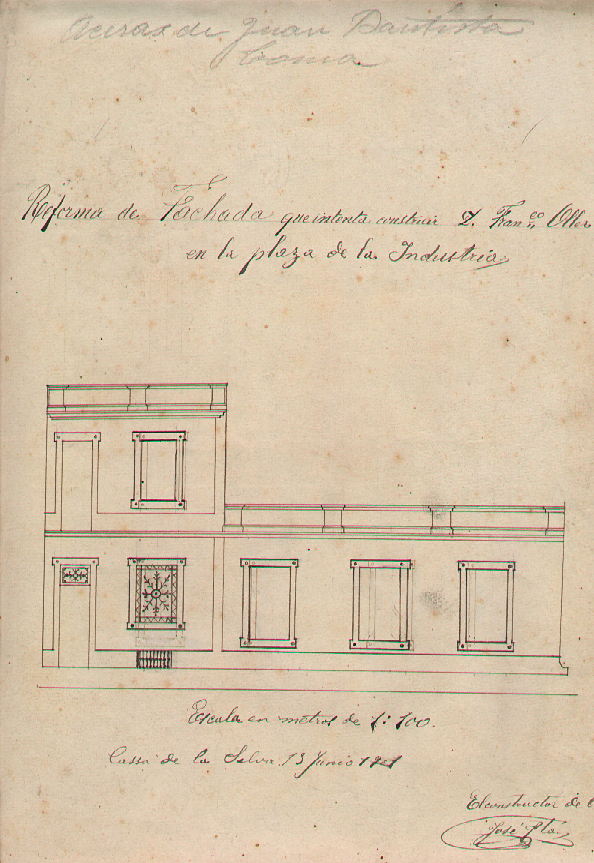 Aceras de Juan Bautista
Coma
Reforma de Fachada que intenta construir D. Fran.co Oller
en la plaza de la Industria
Escala en metros de 1:100.
Cassá de la Selva 13 Junio 1901
El constructor de
José Pla